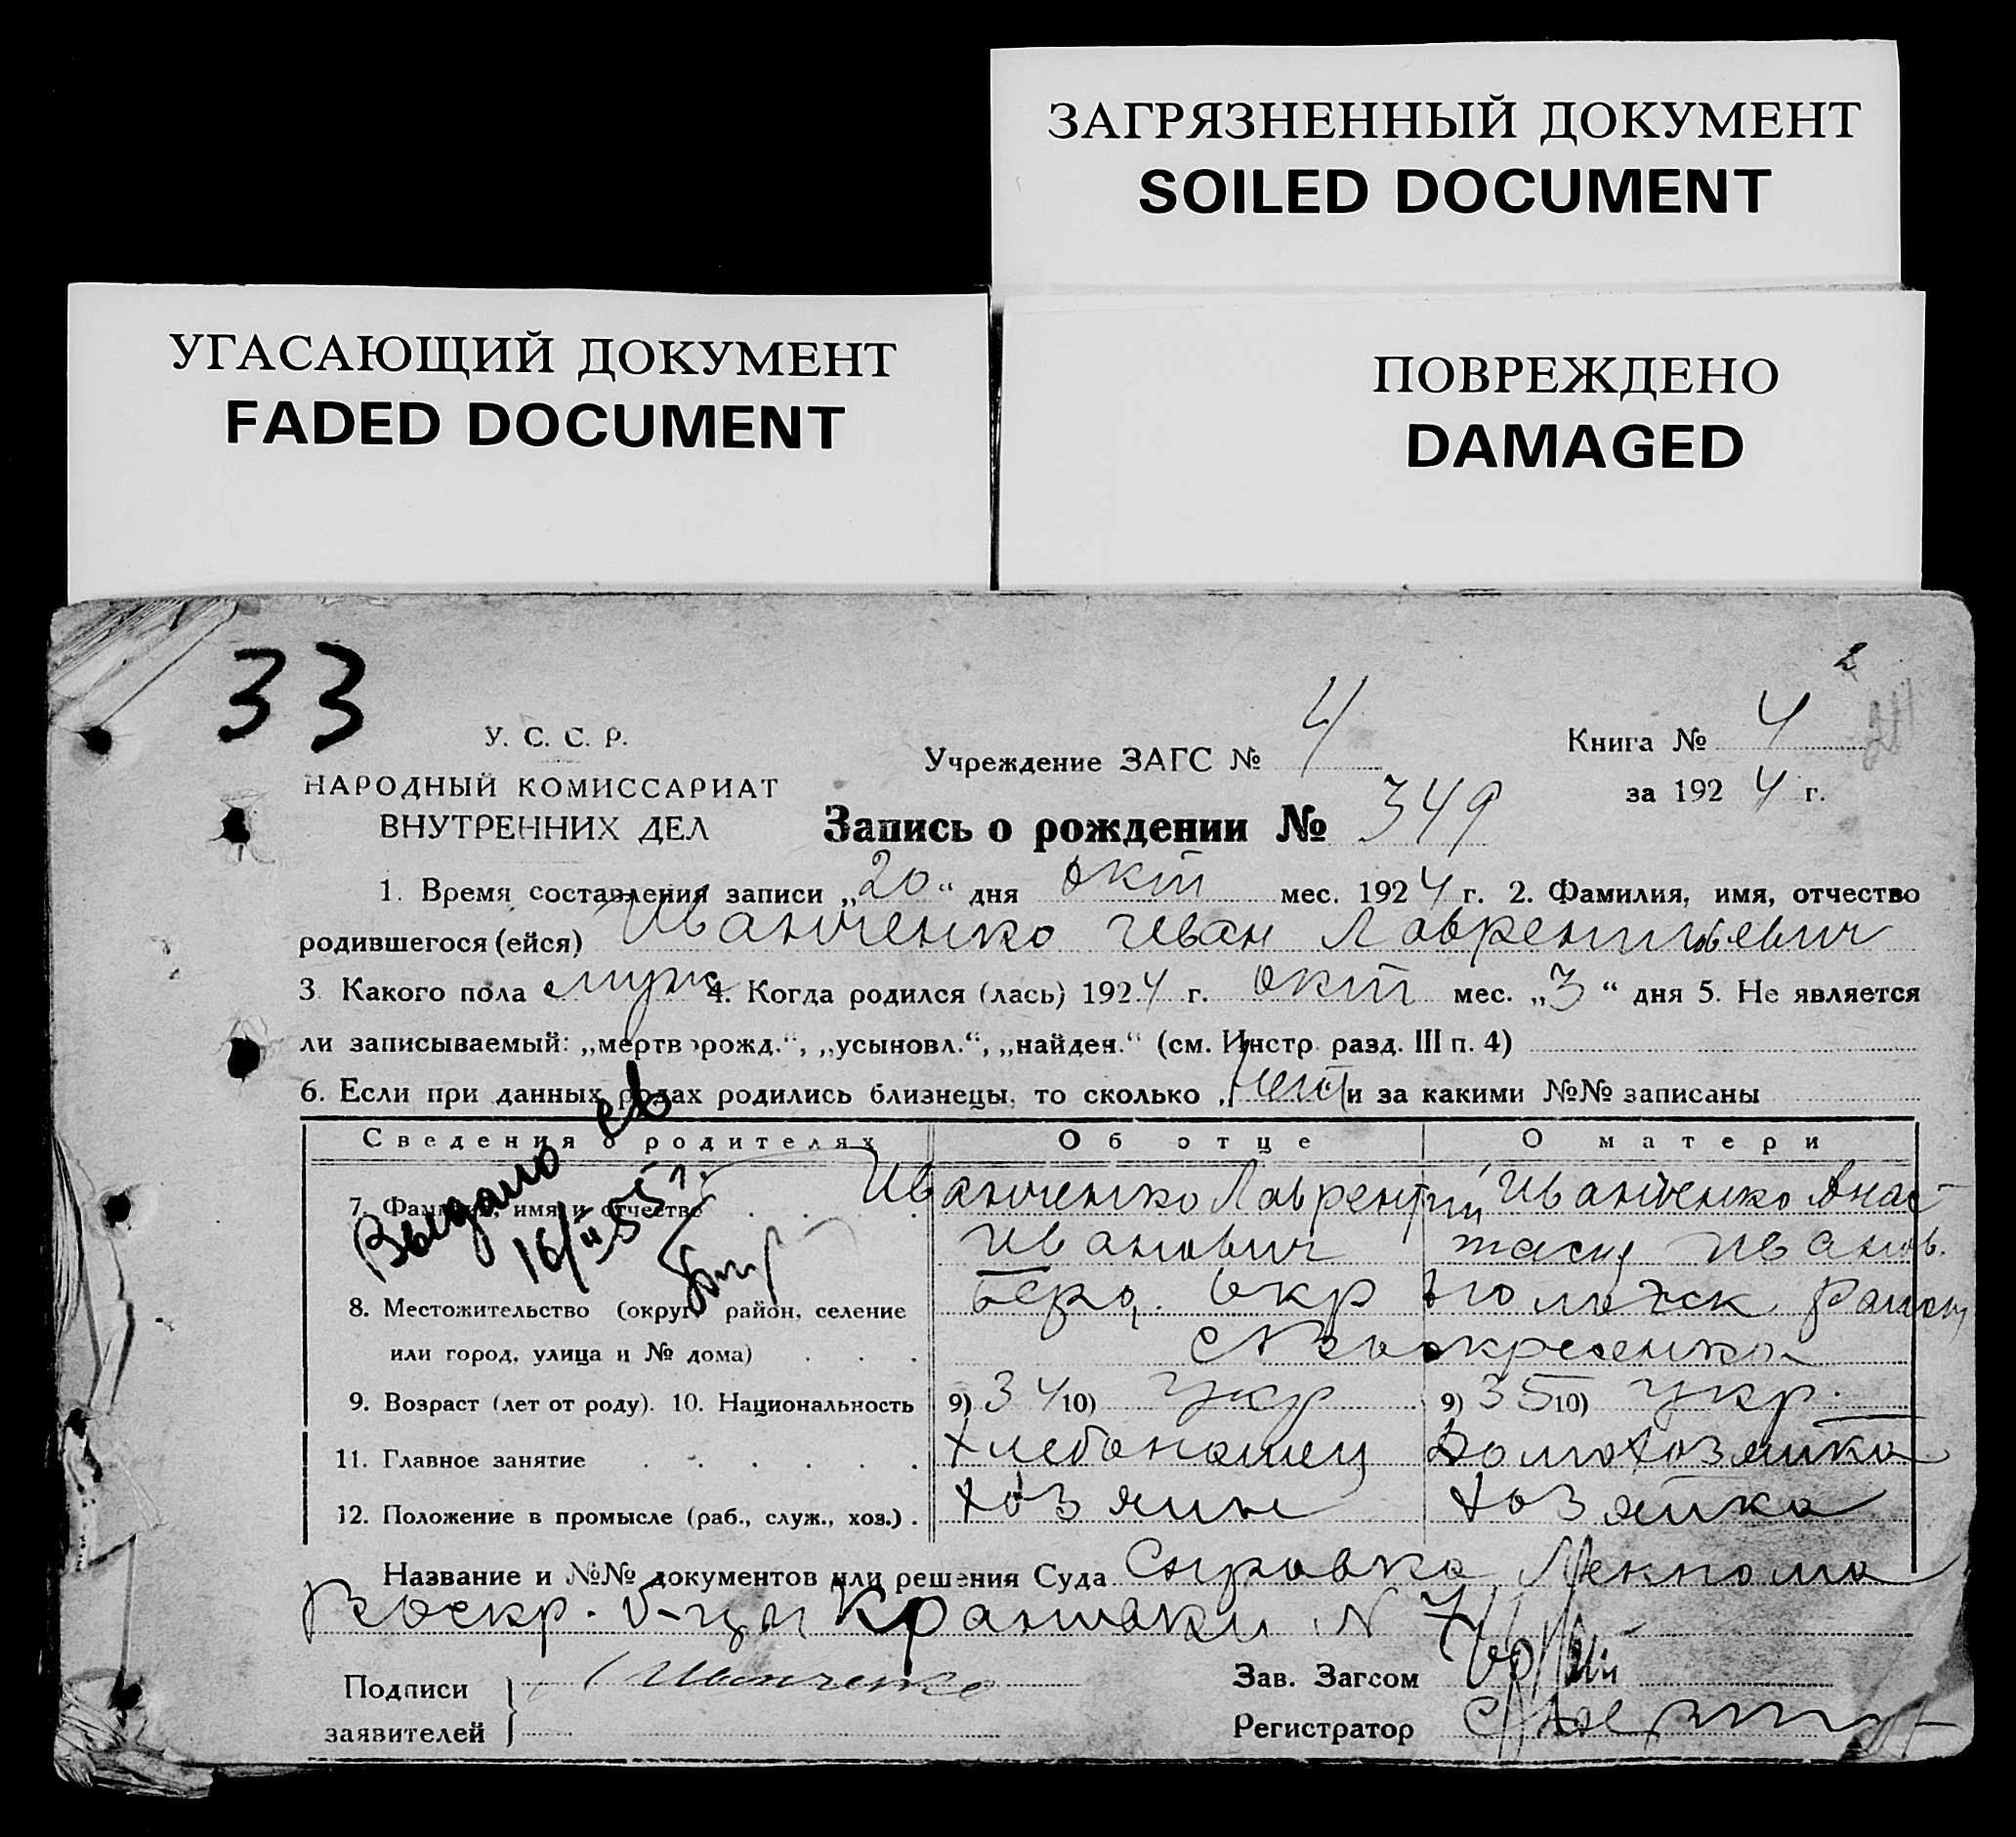 ЗАГРЯЗНЕННЫЙ ДОКУМЕНТ
SOILED DOCUMENT
УГАСАЮЩИЙ ДОКУМЕНТ
FADED DOCUMENT
ПОВРЕЖДЕНО
DAMAGED
33
2
У. С. С. Р.
НАРОДНЫЙ КОМИССАРИАТ
ВНУТРЕННИХ ДЕЛ
Учреждение ЗАГС № 4
Книга № 4
за 1924 г.
Запись о рождении № 349
1. Время составления записи „20“ дня окт мес. 1924 г. 2. Фамилия, имя, отчество
родившегося (ейся) Иванченко Иван Лаврентьевич
3 Какого пола муж 4. Когда родился (лась) 1924 г. окт мес. „3“ дня 5. Не является
ли записываемый: „мертворожд.“, „усыновл.“, „найден.“ (см. Инстр. разд. III п. 4)
6. Если при данных родах родились близнецы, то сколько „нет и за какими №№ записаны
Выдано св
16/II 55 г.
Сведения о родителях Об отце О матери
7. Фамилия, имя и отчество Иванченко Лаврентий Иванченко Анас-
Иванович тасия Иванов.
8. Местожительство (округ, район, селение Берд. окр район
или город, улица и № дома) с Воскресенка
9. Возраст (лет от роду). 10. Национальность 9) 34 10) укр 9) 35 10) укр.
11. Главное занятие Хлебопашец Домохозяйка
12. Положение в промысле (раб., служ., хоз.) хозяин хозяйка
Название и №№ документов или решения Суда Справка
Воскр. N
Подписи заявителей Иванченко
Зав. Загсом
Регистратор